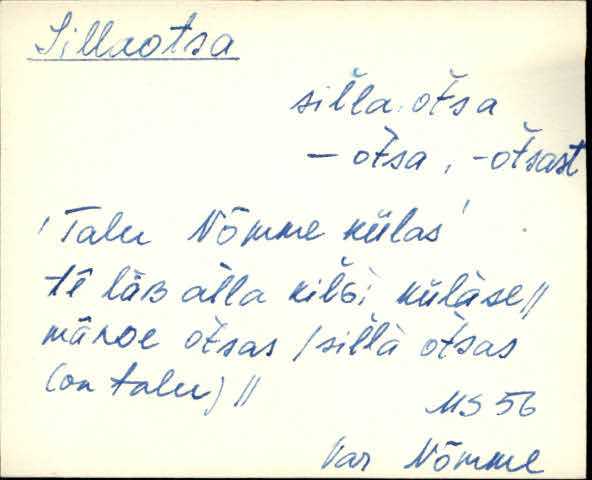 Sillaotsa
sil̆la. ot̆sa
– ot̆sa, -ot̆sast
'Talu Nõmme külas'
tī läʙ alla kil̆ɢi külàse //
mäɴᴅe ot̆sas / sil̆là ot̆sas
(on talu) //
MS 56
Var Nõmme